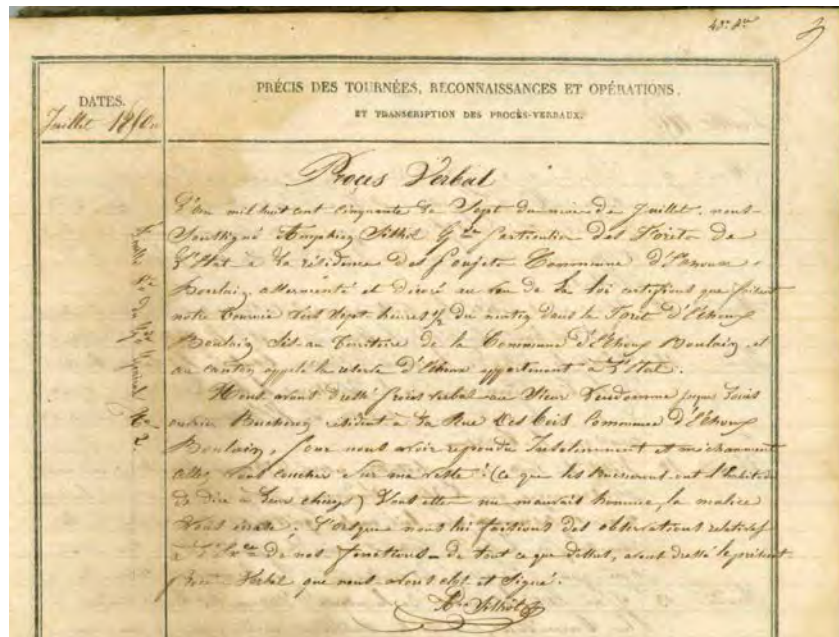 DATES.
Juillet 1850
PRÉCIS DES TOURNÉES, RECONNAISSANCES ET OPÉRATIONS,
ET TRANSCRIPTION DES PROCÈS-VERBAUX.
Procès Verbal
L'an mil huit cent cinquante le Sept du mois de Juillet. nous
Soussigné Silhol Gde particulier des Forêts de
L'Etat à La résidence des Commune d'
Boulain assermenté et au de La loi certifions que faisant
notre tournée vers Sept heures 1/2 du matin dans la Forêt d'Echoux
Boulain Sis au territoire de la Commune d'Echoux Boulain, et
au canton appelé la réserve d'Echoux appartenant à L'Etat.
Nous avons dressé procès verbal au Sieur Vendomme Louis
Bucheron résident à La Rue des bois Commune d'Echoux
Boulain, pour nous avoir repondu Insolemment et méchamment
allez vous coucher Sur ma veste! (ce que les ont l'habitude
de dire à leur chiens) Vous ette un mauvais homme, la malice
Vous ; Lorsque nous lui faisions des observations relatives
à L' de nos fonctions - de tout ce que dessus, avons dressé le présent
Verbal que nous avons clos et Signé.
Silhol
No 2.